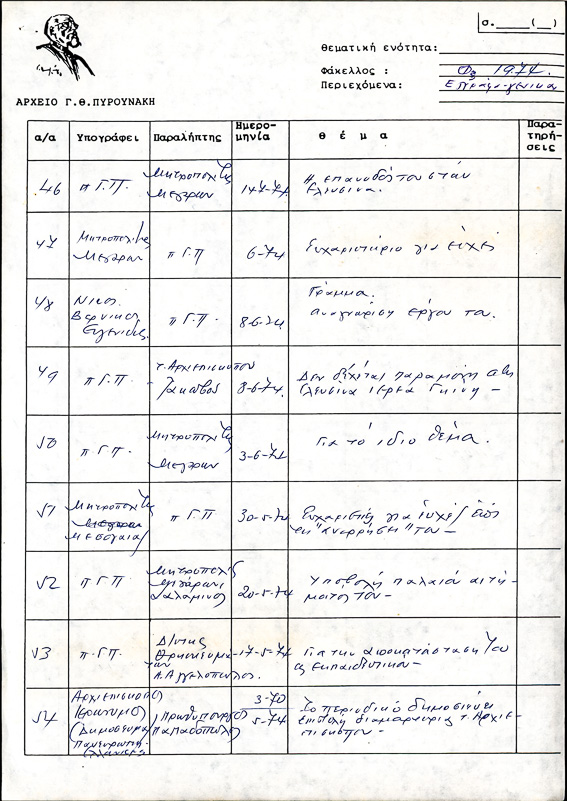 σ.____(__)
θεματική ενότητα:
Φάκελλος : Φ3 1974.
Περιεχόμενα: Εγγραφα-γενικα
ΑΡΧΕΙΟ Γ.Θ.ΠΥΡΟΥΝΑΚΗ
α/α Υπογράφει Παραλήπτης Ημερομηνία θ έ μ α Παρατηρήσεις
46 π Γ.Π. Μητροπολίτης Μεγάρων Η επανοδός του στην Ελευσίνα.
47 Μητροπολίτης Μεγαρων π Γ.Π 6-74 Ευχαριστήριο για ευχές
48 Νικος Βερνικος Ευγενιδης π Γ.Π. 8-6-74 Γράμμα. αναγνώριση έργου του.
49 π Γ.Π. τ. Αρχιεπισκοπον Ιακωβος 8-6-74. Δεν δέχεται παραμονή στην Ελευσίνα ιερεα
50 π Γ.Π. Μητροπολίτης Μεγαρων 3-6-74 Για το ίδιο θέμα.
51 Μητροπολίτης Μεσογαιας π Γ.Π 30-5-74 Ευχαριστίες για ευχές του-
52 π Γ.Π Μητροπολίτης Μεγάρων Σαλαμινος 20-5-74 Υποβολή παλαιά αιτήματός του-
53 π.Γ.Π. Δ/ντης των Α. Αγγελοπουλος. 17-5-74 Για την αποκατάσταση του ως εκπαιδευτικου-
54 Αρχιεπισκοπος Ιερωνυμος (Δημοσιευμα Πρωθυπουργος Παπαδοπουλος 3-70 5-74 Το περιοδικό δημοσιευει επιστολη διαμαρτυριας τ Αρχιεπισκοπου-